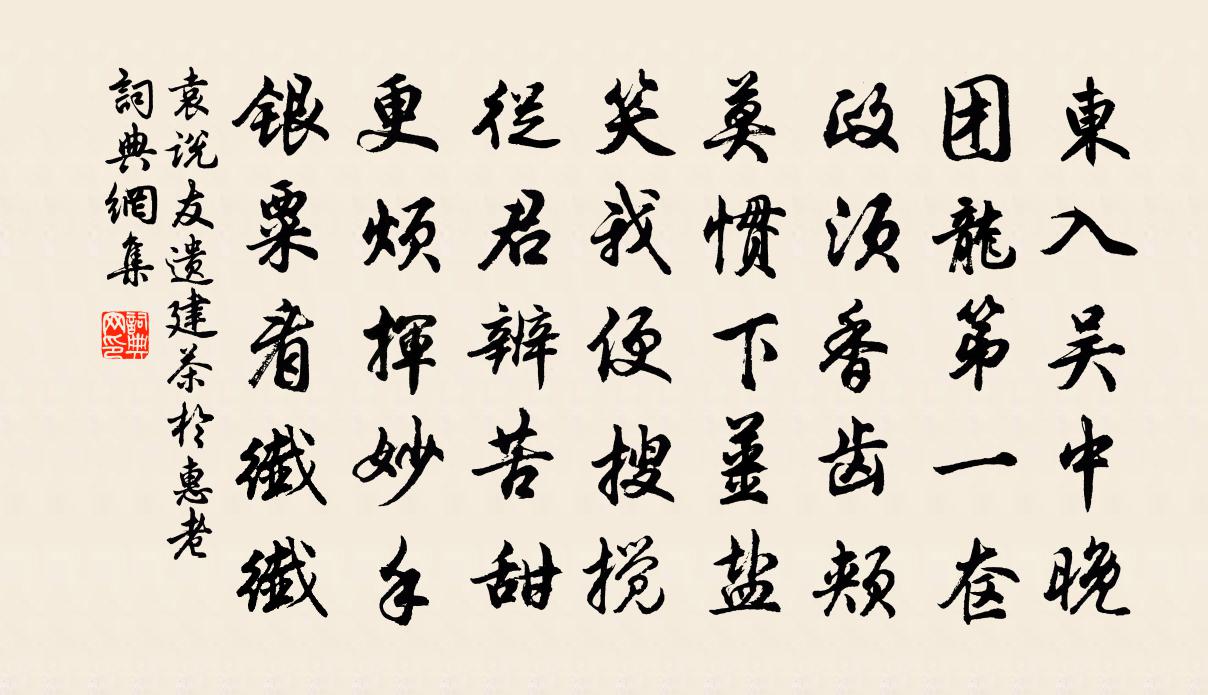 東入吴中晚
团龍第一奁
政须香齿颊
莫慣下薑盐
笑我便搜搅
從君辨苦甜
更烦揮妙手
銀粟看纖纖
袁说友遗建茶於惠老
詞典網集
詞典网印